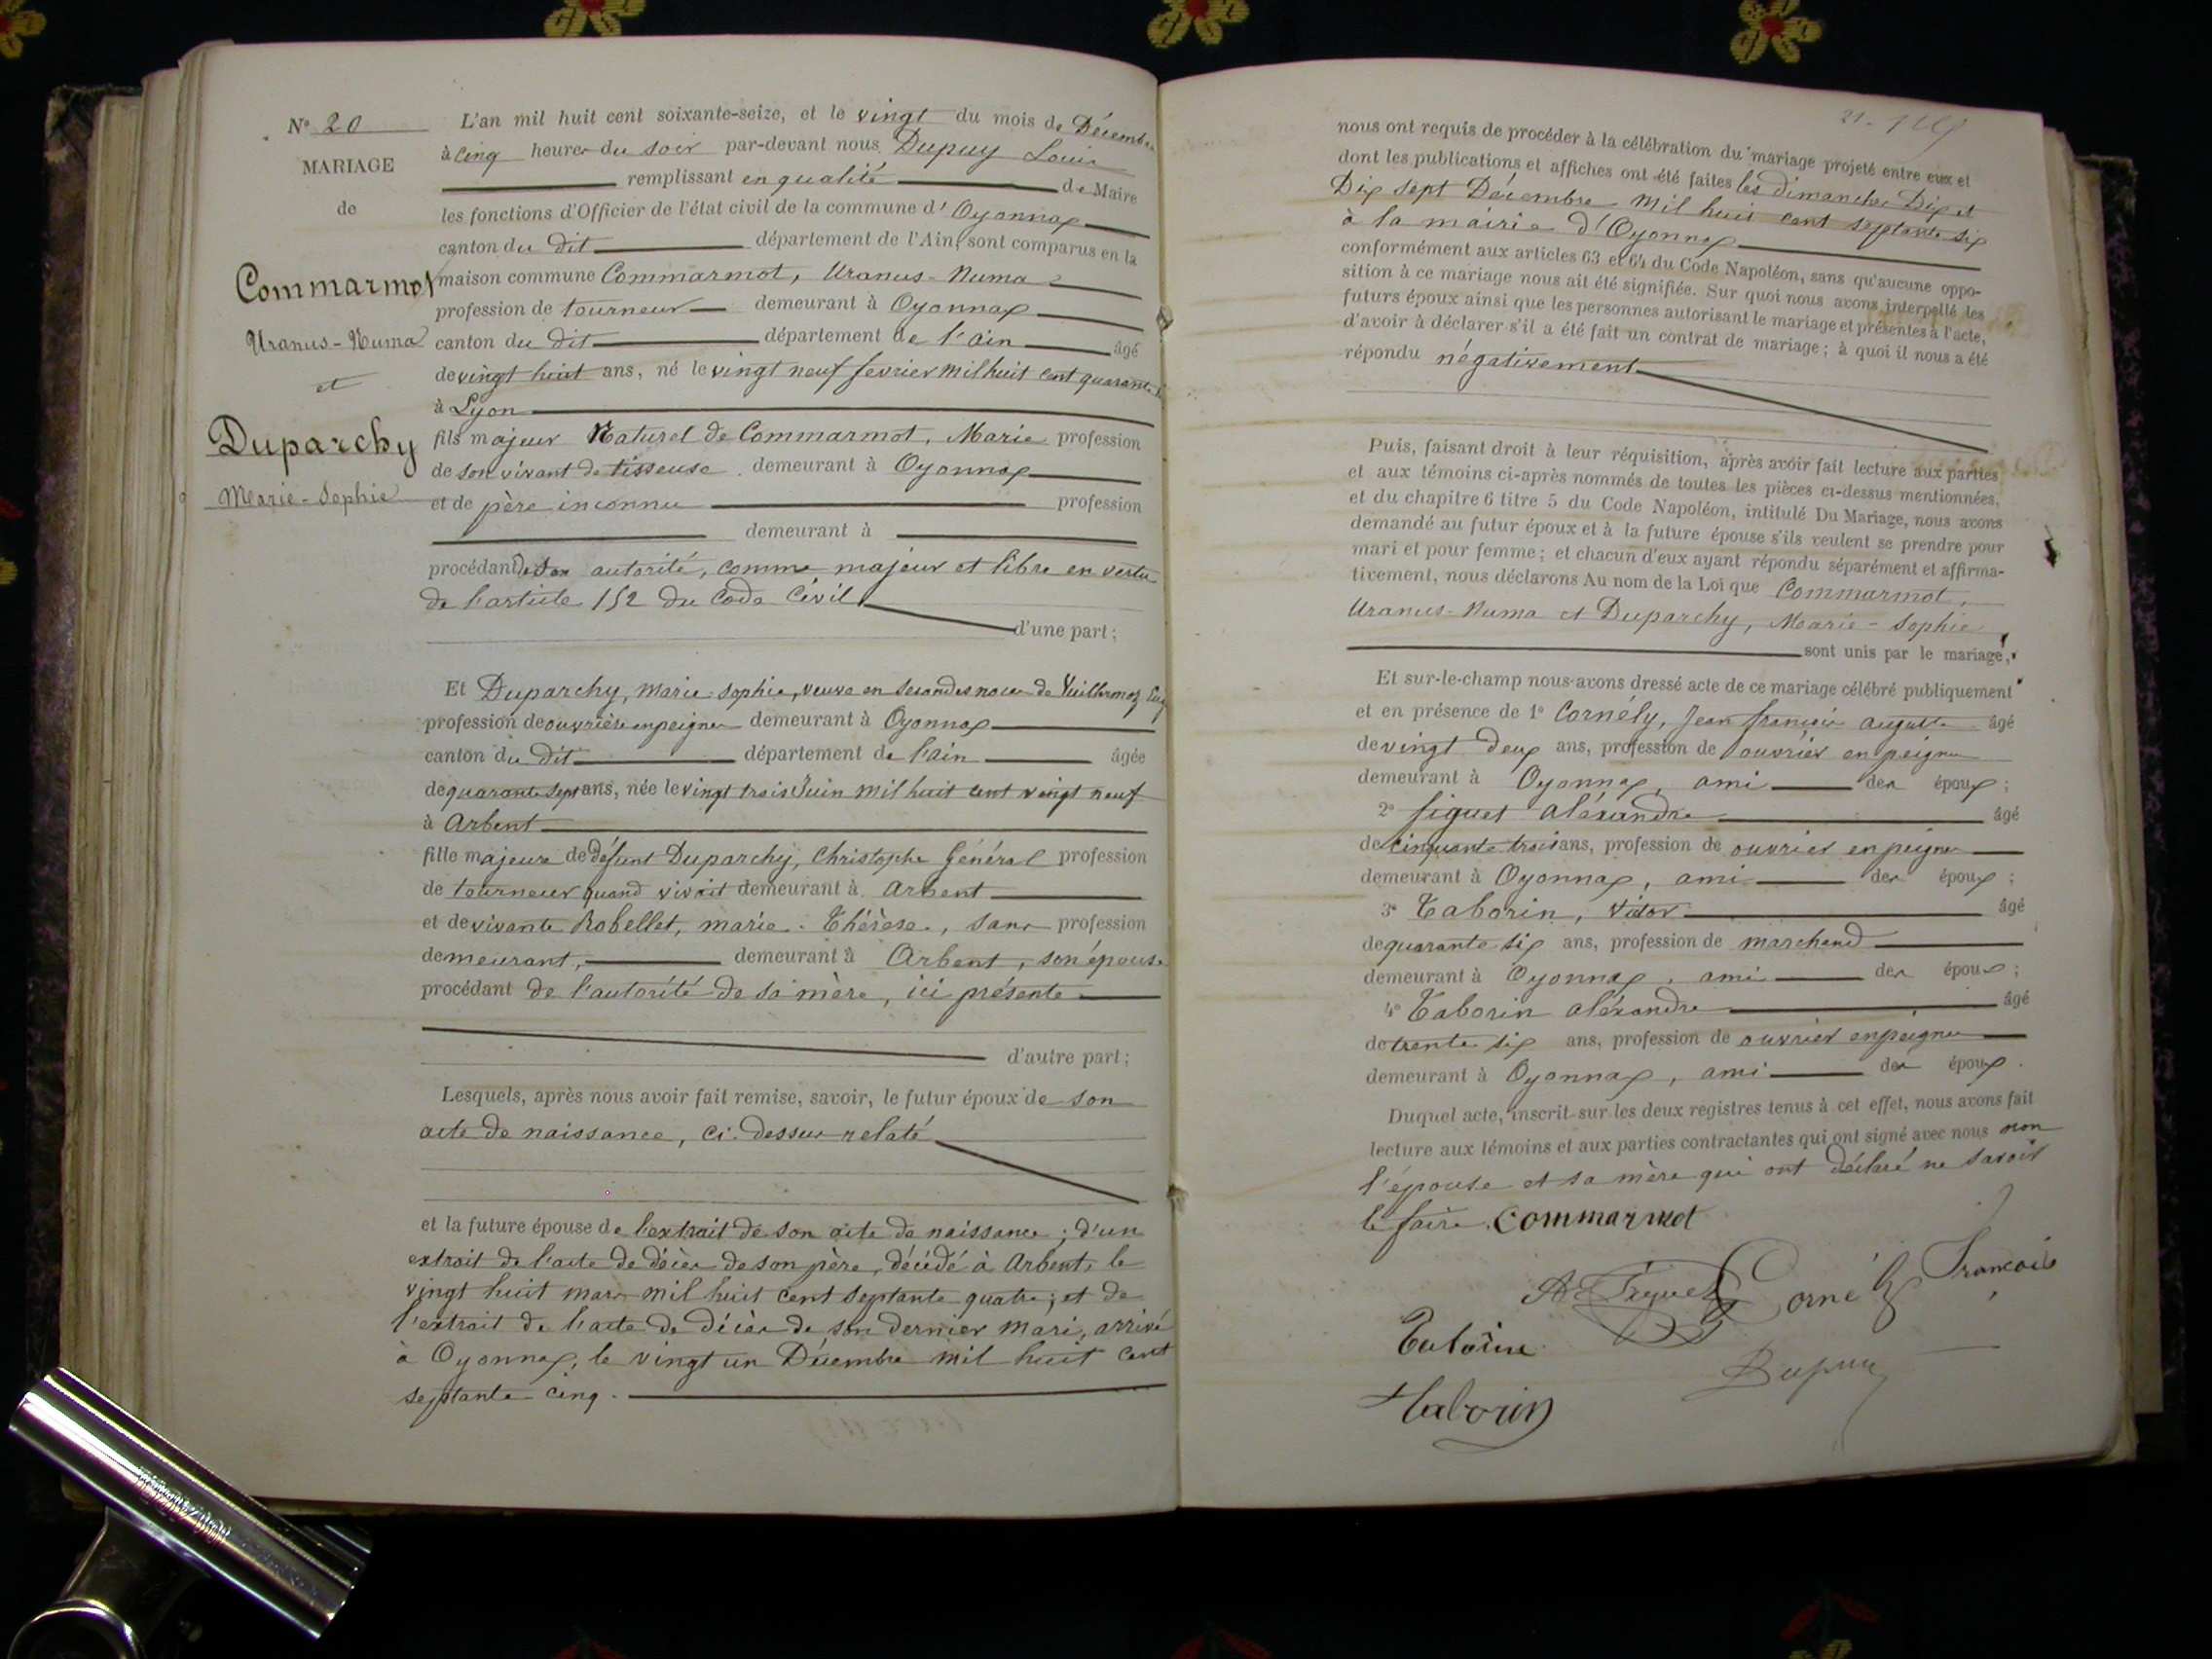 N° 20
MARIAGE
de
Commarmot
Uranus-Numa
et
Duparchy
Marie-Sophie
L'an mil huit cent soixante-seize, et le vingt du mois de Décembre
à cinq heures du soir par-devant nous Dupuy Louis
remplissant en qualité de Maire
les fonctions d'Officier de l'état civil de la commune d' Oyonnax
canton du dit département de l'Ain, sont comparus en la
maison commune Commarmot, Uranus-Numa
profession de tourneur demeurant à Oyonnax
canton du dit département de l'ain âgé
de vingt huit ans, né le vingt neuf fevrier mil huit cent quarante
à Lyon
fils majeur Naturel de Commarmot, Marie profession
de son vivant de tisseuse demeurant à Oyonnax
et de père inconnu profession
demeurant à
procédant de son autorité, comme majeur et libre en vertu
de l'article 152 du Code Civil
d'une part;
Et Duparchy, Marie-Sophie, veuve en secondes noces de Vuillermoz
profession de ouvrière en peignes demeurant à Oyonnax
canton du dit département de l'ain âgée
de quarante sept ans, née le vingt trois Juin mil huit cent vingt neuf
à Arbent
fille majeure de défunt Duparchy, Christophe Général profession
de tourneur quand vivait demeurant à Arbent
et de vivante Robellet, marie-Thérèse, sans profession
demeurant, demeurant à Arbent, son épouse
procédant de l'autorité de sa mère, ici présente
d'autre part;
Lesquels, après nous avoir fait remise, savoir, le futur époux de son
acte de naissance, ci-dessus relaté
et la future épouse de l'extrait de son acte de naissance; d'un
extrait de l'acte de décès de son père, décédé à Arbent, le
vingt huit mars mil huit cent septante quatre; et de
l'extrait de l'acte de décès de son dernier mari, arrivé
à Oyonnax, le vingt un Décembre mil huit cent
septante cinq.
nous ont requis de procéder à la célébration du mariage projeté entre eux et
dont les publications et affiches ont été faites les dimanches Dix et
Dix sept Décembre mil huit cent septante six
à la mairie d'Oyonnax
conformément aux articles 63 et 64 du Code Napoléon, sans qu'aucune oppo-
sition à ce mariage nous ait été signifiée. Sur quoi nous avons interpellé les
futurs époux ainsi que les personnes autorisant le mariage et présentes à l'acte,
d'avoir à déclarer s'il a été fait un contrat de mariage; à quoi il nous a été
répondu négativement
Puis, faisant droit à leur réquisition, après avoir fait lecture aux parties
et aux témoins ci-après nommés de toutes les pièces ci-dessus mentionnées,
et du chapitre 6 titre 5 du Code Napoléon, intitulé Du Mariage, nous avons
demandé au futur époux et à la future épouse s'ils veulent se prendre pour
mari et pour femme; et chacun d'eux ayant répondu séparément et affirma-
tivement, nous déclarons Au nom de la Loi que Commarmot,
Uranus-Numa et Duparchy, Marie-Sophie
sont unis par le mariage,
Et sur-le-champ nous avons dressé acte de ce mariage célébré publiquement
et en présence de 1° Cornély, Jean françois auguste âgé
de vingt deux ans, profession de ouvrier en peignes
demeurant à Oyonnax, ami des époux;
2° figuet aléxandre âgé
de cinquante trois ans, profession de ouvrier en peignes
demeurant à Oyonnax, ami des époux;
3° Taborin, Victor âgé
de quarante six ans, profession de marchand
demeurant à Oyonnax, ami des époux;
4° Taborin aléxandre âgé
de trente six ans, profession de ouvrier en peignes
demeurant à Oyonnax, ami des époux.
Duquel acte, inscrit sur les deux registres tenus à cet effet, nous avons fait
lecture aux témoins et aux parties contractantes qui ont signé avec nous non
l'épouse et sa mère qui ont déclaré ne savoir
le faire. Commarmot
Cornély François
Taborin
Taborin
Dupuy